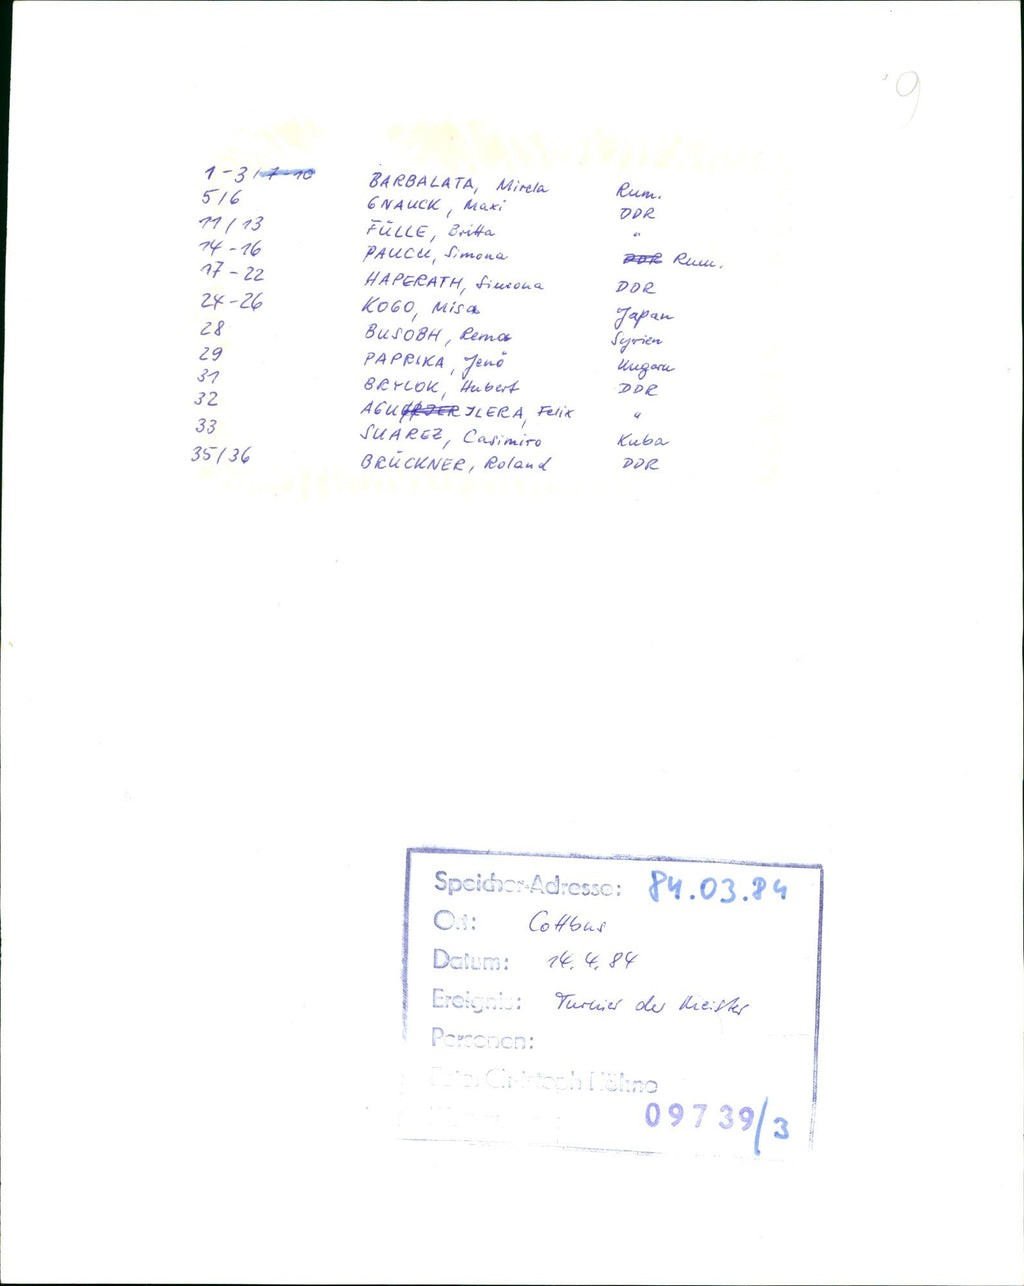 9
1-3/7-10 BARBALATA, Mirela Rum.
5/6 GNAUCK, Maxi DDR
11/13 FÜLLE, Britta "
14-16 PAUCU, Simona DDR Rum.
17-22 HAPERATH, Simona DDR
24-26 KOGO, Misa Japan
28 BUSOBH, Rema Syrien
29 PAPRIKA, Jenö Ungarn
31 BRYLOK, Hubert DDR
32 AGUILERA, Felix "
33 SUAREZ, Casimiro Kuba
35/36 BRÜCKNER, Roland DDR
Speicher-Adresse: 84.03.84
Ort: Cottbus
Datum: 14.4.84
Ereignis: Turnier der Meister
Personen:
Foto: Christoph Höhne
09739/3